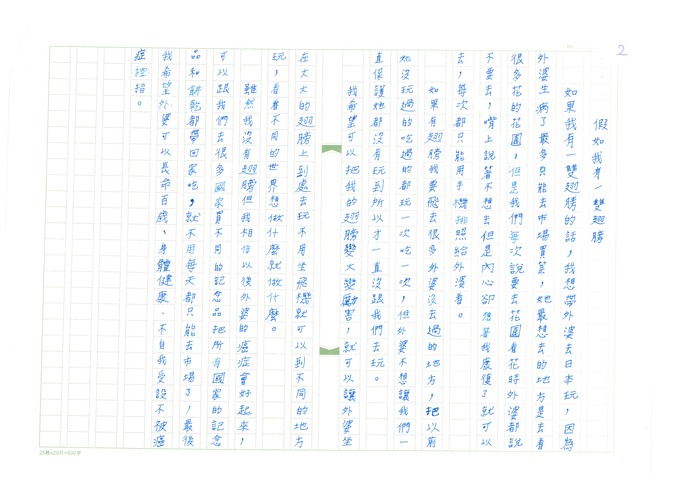 2
假如我有一雙翅膀
如果我有一雙翅膀的話，我想帶外婆去日本玩，因為
外婆生病了最多只能去市場買菜，她最想去的地方是去看
很多花的花園，但是我們每次說要去花園看花時外婆都說
不要去，嘴上說著不想去但是內心卻想著我康復了就可以
去，每次都只能用手機拍照給外婆看。
如果有翅膀我要飛去很多外婆沒去過的地方，把以前
她沒玩過的吃過的都玩一次吃一次，但外婆不想讓我們一
直保護她都沒有玩到所以才一直沒跟我們去玩。
我希望可以把我的翅膀變大變厲害，就可以讓外婆坐
在大大的翅膀上到處去玩不用坐飛機就可以到不同的地方
玩，看看不同的世界想做什麼就做什麼。
雖然我沒有翅膀但我相信以後外婆的癌症會好起來，
可以跟我們去很多國家買不同的記念品把所有國家的記念
品和餅乾都帶回家吃，就不用每天都只能去市場了，最後
我希望外婆可以長命百歲、身體健康、不自我受說不被癌
症控指。
25格×20行=500字